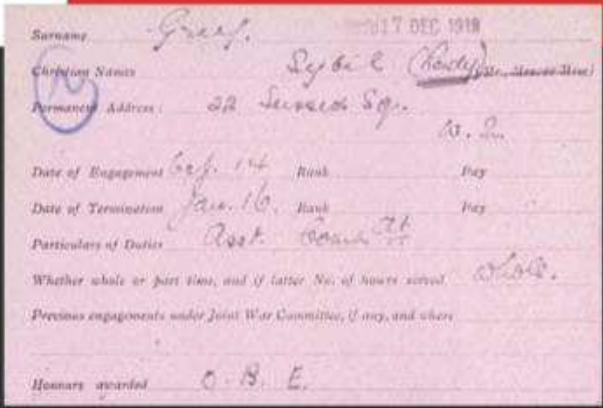 Surname Grey. 17 DEC 1918
Christian Names Sybil (Lady) (Mr., Mrs. or Miss)
Permanent Address: 22 Sussex Sq.
W. 2.
Date of Engagement 14 Rank Pay
Date of Termination Jan. 16. Rank Pay
Particulars of Duties Asst.
Whether whole or part time, and if latter No. of hours served whole.
Previous engagements under Joint War Committee, if any, and where
Honours awarded O. B. E.